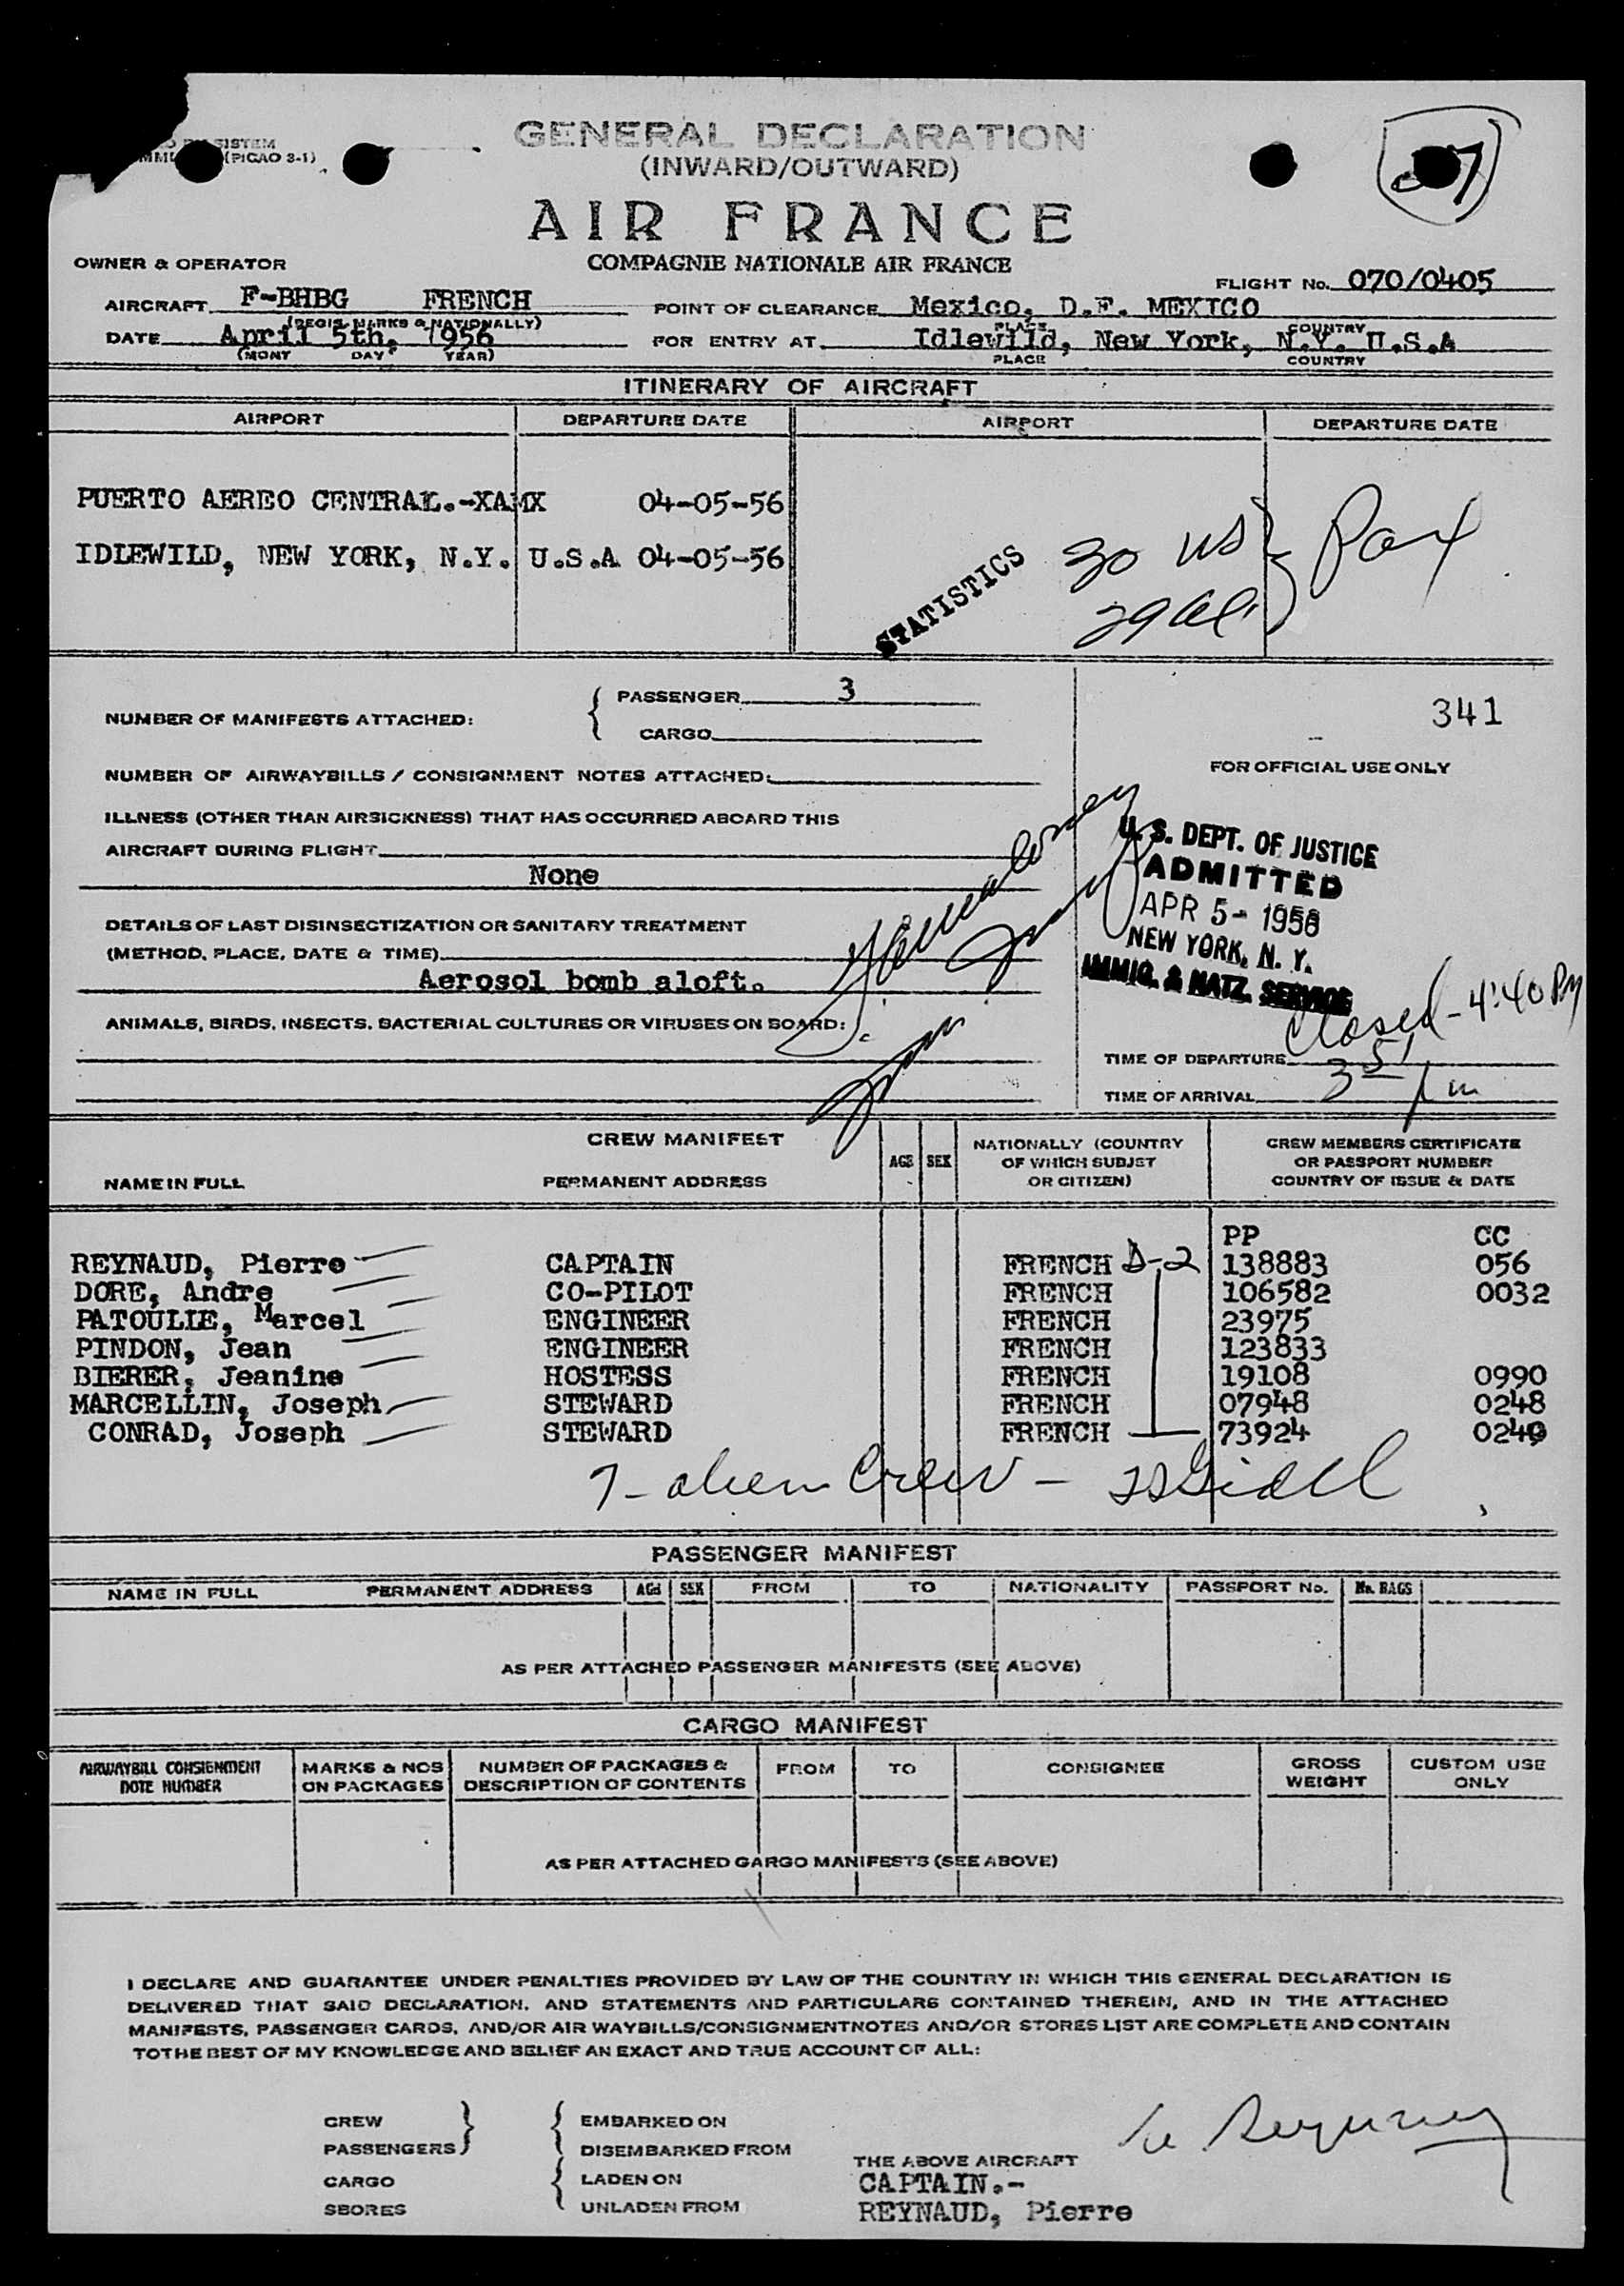 SISTEM
(PICAO 3-1)
GENERAL DECLARATION
(INWARD/OUTWARD)
AIR FRANCE
COMPAGNIE NATIONALE AIR FRANCE
OWNER & OPERATOR
FLIGHT No. 070/0405
AIRCRAFT F-BHBG FRENCH POINT OF CLEARANCE Mexico, D.F. MEXICO
(REGIS. MARKS & NATIONALLY) PLACE COUNTRY
DATE April 5th, 1956 FOR ENTRY AT. Idlewild, New York, N.Y. U.S.A
(MONT DAY YEAR) PLACE COUNTRY
ITINERARY OF AIRCRAFT
AIRPORT DEPARTURE DATE AIRPORT DEPARTURE DATE
PUERTO AEREO CENTRAL.-XAMX 04-05-56
IDLEWILD, NEW YORK, N.Y. U.S.A 04-05-56
STATISTICS
30 US } Pax
29 al.
NUMBER OF MANIFESTS ATTACHED: { PASSENGER 3
CARGO
341
NUMBER OF AIRWAYBILLS / CONSIGNMENT NOTES ATTACHED:
FOR OFFICIAL USE ONLY
ILLNESS (OTHER THAN AIRSICKNESS) THAT HAS OCCURRED ABOARD THIS
AIRCRAFT DURING FLIGHT
None
DETAILS OF LAST DISINSECTIZATION OR SANITARY TREATMENT
(METHOD, PLACE, DATE & TIME)
Aerosol bomb aloft.
ANIMALS, BIRDS, INSECTS, BACTERIAL CULTURES OR VIRUSES ON BOARD:
U. S. DEPT. OF JUSTICE
ADMITTED
APR 5- 1956
NEW YORK, N. Y.
IMMIG. & NATZ. SERVICE
Closed - 4:40 PM
TIME OF DEPARTURE
TIME OF ARRIVAL 3 51 pm
CREW MANIFEST
NAME IN FULL PERMANENT ADDRESS AGE SEX NATIONALLY (COUNTRY OF WHICH SUBJET OR CITIZEN) CREW MEMBERS CERTIFICATE OR PASSPORT NUMBER COUNTRY OF ISSUE & DATE
PP CC
REYNAUD, Pierre CAPTAIN FRENCH D-2 138883 056
DORE, Andre CO-PILOT FRENCH 106582 0032
PATOULIE, Marcel ENGINEER FRENCH 23975
PINDON, Jean ENGINEER FRENCH 123833
BIERER, Jeanine HOSTESS FRENCH 19108 0990
MARCELLIN, Joseph STEWARD FRENCH 07948 0248
CONRAD, Joseph STEWARD FRENCH 73924 0240
7 - alien Crew -
PASSENGER MANIFEST
NAME IN FULL PERMANENT ADDRESS AGE SEX FROM TO NATIONALITY PASSPORT No. No. BAGS
AS PER ATTACHED PASSENGER MANIFESTS (SEE ABOVE)
CARGO MANIFEST
AIRWAYBILL CONSIGNMENT NOTE NUMBER MARKS & NOS ON PACKAGES NUMBER OF PACKAGES & DESCRIPTION OF CONTENTS FROM TO CONSIGNEE GROSS WEIGHT CUSTOM USE ONLY
AS PER ATTACHED CARGO MANIFESTS (SEE ABOVE)
I DECLARE AND GUARANTEE UNDER PENALTIES PROVIDED BY LAW OF THE COUNTRY IN WHICH THIS GENERAL DECLARATION IS
DELIVERED THAT SAID DECLARATION, AND STATEMENTS AND PARTICULARS CONTAINED THEREIN, AND IN THE ATTACHED
MANIFESTS, PASSENGER CARDS, AND/OR AIR WAYBILLS/CONSIGNMENTNOTES AND/OR STORES LIST ARE COMPLETE AND CONTAIN
TO THE BEST OF MY KNOWLEDGE AND BELIEF AN EXACT AND TRUE ACCOUNT OF ALL:
CREW } { EMBARKED ON
PASSENGERS DISEMBARKED FROM
THE ABOVE AIRCRAFT
CARGO { LADEN ON
CAPTAIN.-
SBORES UNLADEN FROM
REYNAUD, Pierre